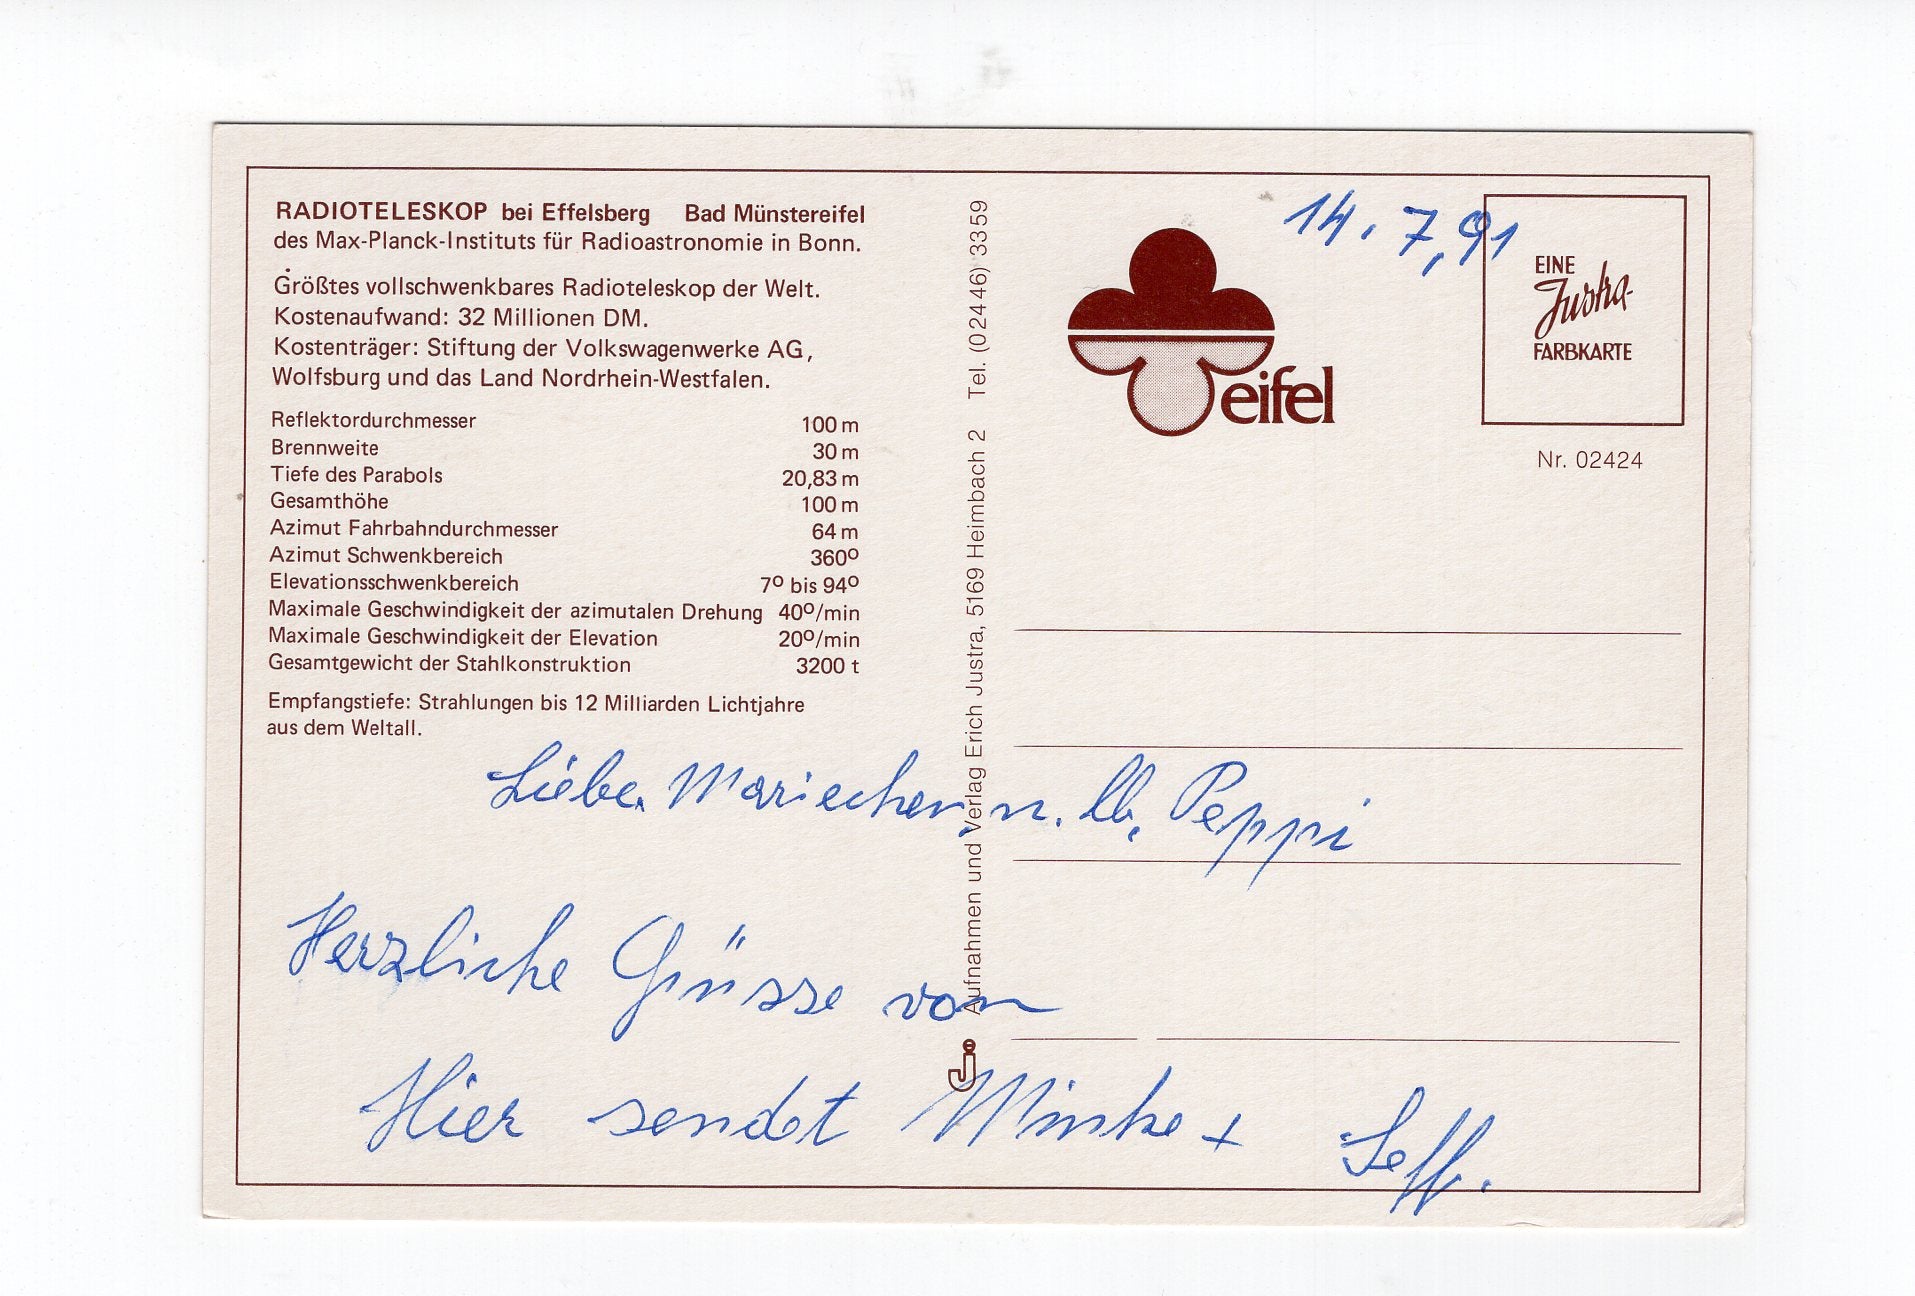 RADIOTELESKOP bei Effelsberg Bad Münstereifel
des Max-Planck-Instituts für Radioastronomie in Bonn.
Größtes vollschwenkbares Radioteleskop der Welt.
Kostenaufwand: 32 Millionen DM.
Kostenträger: Stiftung der Volkswagenwerke AG,
Wolfsburg und das Land Nordrhein-Westfalen.
Reflektordurchmesser 100 m
Brennweite 30 m
Tiefe des Parabols 20,83 m
Gesamthöhe 100 m
Azimut Fahrbahndurchmesser 64 m
Azimut Schwenkbereich 360º
Elevationsschwenkbereich 7º bis 94º
Maximale Geschwindigkeit der azimutalen Drehung 40º/min
Maximale Geschwindigkeit der Elevation 20º/min
Gesamtgewicht der Stahlkonstruktion 3200 t
Empfangstiefe: Strahlungen bis 12 Milliarden Lichtjahre
aus dem Weltall.
Aufnahmen und Verlag Erich Justra, 5169 Heimbach 2 Tel. (02446) 3359
eifel
14. 7,91
EINE
Justra-
FARBKARTE
Nr. 02424
Liebe Mariechen, u. lb. Peppi
Herzliche Grüsse von
Hier sendet Minke + Seff.